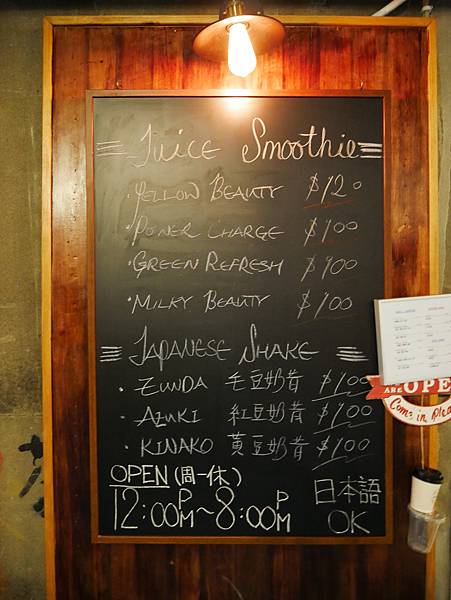 Juice Smoothie
・Yellow Beauty $120
・Power Charge $100
・Green Refresh $100
・Milky Beauty $100
Japanese Shake
・Zunda 毛豆奶昔 $100
・Azuki 紅豆奶昔 $100
・Kinako 黃豆奶昔 $100
OPEN (周一休)
12:00PM~8:00PM
日本語
OK
ARE OPE
Come in Plea